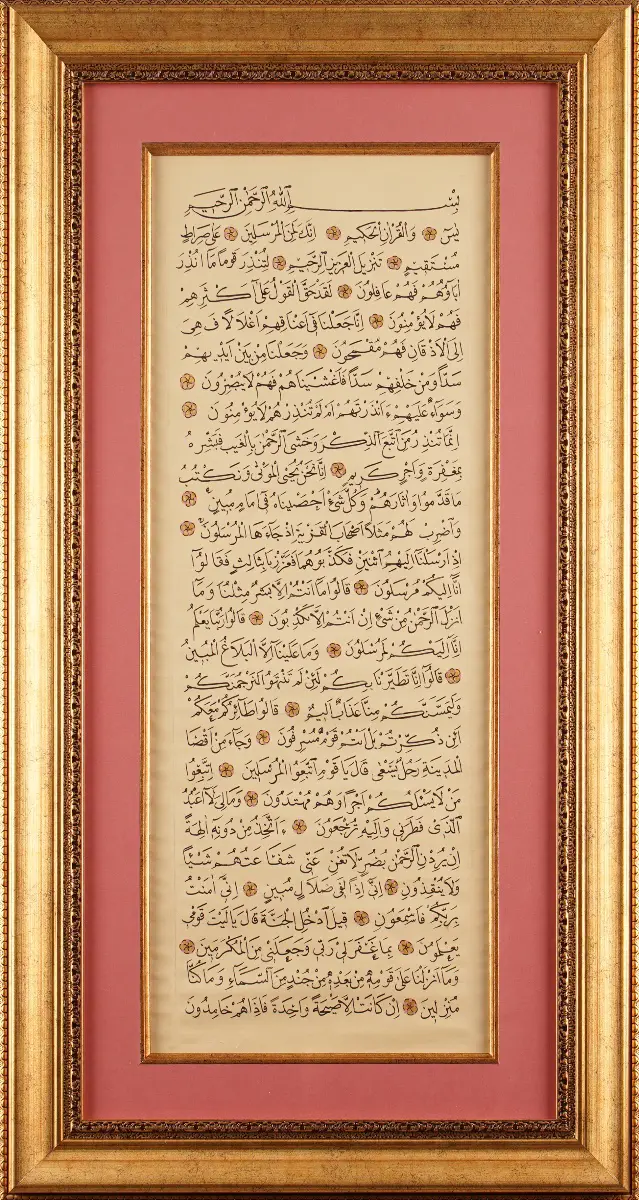 بِسْمِ اللّٰهِ الرَّحْمٰنِ الرَّحِيمِ
يٰسٓ ۝ وَالْقُرْاٰنِ الْحَكِيمِ ۝ اِنَّكَ لَمِنَ الْمُرْسَلِينَ ۝ عَلٰى صِرَاطٍ
مُسْتَقِيمٍ ۝ تَنْزِيلَ الْعَزِيزِ الرَّحِيمِ ۝ لِتُنْذِرَ قَوْمًا مَا اُنْذِرَ
اٰبَاؤُهُمْ فَهُمْ غَافِلُونَ ۝ لَقَدْ حَقَّ الْقَوْلُ عَلٰى اَكْثَرِهِمْ
فَهُمْ لَا يُؤْمِنُونَ ۝ اِنَّا جَعَلْنَا فِى اَعْنَاقِهِمْ اَغْلَالًا فَهِىَ
اِلَى الْاَذْقَانِ فَهُمْ مُقْمَحُونَ ۝ وَجَعَلْنَا مِنْ بَيْنِ اَيْدِيهِمْ
سَدًّا وَمِنْ خَلْفِهِمْ سَدًّا فَاَغْشَيْنَاهُمْ فَهُمْ لَا يُبْصِرُونَ ۝
وَسَوَاءٌ عَلَيْهِمْ ءَاَنْذَرْتَهُمْ اَمْ لَمْ تُنْذِرْهُمْ لَا يُؤْمِنُونَ ۝
اِنَّمَا تُنْذِرُ مَنِ اتَّبَعَ الذِّكْرَ وَخَشِىَ الرَّحْمٰنَ بِالْغَيْبِ فَبَشِّرْهُ
بِمَغْفِرَةٍ وَاَجْرٍ كَرِيمٍ ۝ اِنَّا نَحْنُ نُحْيِى الْمَوْتٰى وَنَكْتُبُ
مَا قَدَّمُوا وَاٰثَارَهُمْ وَكُلَّ شَىْءٍ اَحْصَيْنَاهُ فِى اِمَامٍ مُبِينٍ ۝
وَاضْرِبْ لَهُمْ مَثَلًا اَصْحَابَ الْقَرْيَةِ اِذْ جَاءَهَا الْمُرْسَلُونَ ۝
اِذْ اَرْسَلْنَا اِلَيْهِمُ اثْنَيْنِ فَكَذَّبُوهُمَا فَعَزَّزْنَا بِثَالِثٍ فَقَالُوا
اِنَّا اِلَيْكُمْ مُرْسَلُونَ ۝ قَالُوا مَا اَنْتُمْ اِلَّا بَشَرٌ مِثْلُنَا وَمَا
اَنْزَلَ الرَّحْمٰنُ مِنْ شَىْءٍ اِنْ اَنْتُمْ اِلَّا تَكْذِبُونَ ۝ قَالُوا رَبُّنَا يَعْلَمُ
اِنَّا اِلَيْكُمْ لَمُرْسَلُونَ ۝ وَمَا عَلَيْنَا اِلَّا الْبَلَاغُ الْمُبِينُ
۝ قَالُوا اِنَّا تَطَيَّرْنَا بِكُمْ لَئِنْ لَمْ تَنْتَهُوا لَنَرْجُمَنَّكُمْ
وَلَيَمَسَّنَّكُمْ مِنَّا عَذَابٌ اَلِيمٌ ۝ قَالُوا طَائِرُكُمْ مَعَكُمْ
اَئِنْ ذُكِّرْتُمْ بَلْ اَنْتُمْ قَوْمٌ مُسْرِفُونَ ۝ وَجَاءَ مِنْ اَقْصَا
الْمَدِينَةِ رَجُلٌ يَسْعٰى قَالَ يَا قَوْمِ اتَّبِعُوا الْمُرْسَلِينَ ۝ اِتَّبِعُوا
مَنْ لَا يَسْئَلُكُمْ اَجْرًا وَهُمْ مُهْتَدُونَ ۝ وَمَا لِىَ لَا اَعْبُدُ
الَّذِى فَطَرَنِى وَاِلَيْهِ تُرْجَعُونَ ۝ ءَاَتَّخِذُ مِنْ دُونِهِ اٰلِهَةً
اِنْ يُرِدْنِ الرَّحْمٰنُ بِضُرٍّ لَا تُغْنِ عَنِّى شَفَاعَتُهُمْ شَيْئًا
وَلَا يُنْقِذُونِ ۝ اِنِّى اِذًا لَفِى ضَلَالٍ مُبِينٍ ۝ اِنِّى اٰمَنْتُ
بِرَبِّكُمْ فَاسْمَعُونِ ۝ قِيلَ ادْخُلِ الْجَنَّةَ قَالَ يَا لَيْتَ قَوْمِى
يَعْلَمُونَ ۝ بِمَا غَفَرَ لِى رَبِّى وَجَعَلَنِى مِنَ الْمُكْرَمِينَ ۝
وَمَا اَنْزَلْنَا عَلٰى قَوْمِهِ مِنْ بَعْدِهِ مِنْ جُنْدٍ مِنَ السَّمَاءِ وَمَا كُنَّا
مُنْزِلِينَ ۝ اِنْ كَانَتْ اِلَّا صَيْحَةً وَاحِدَةً فَاِذَا هُمْ خَامِدُونَ